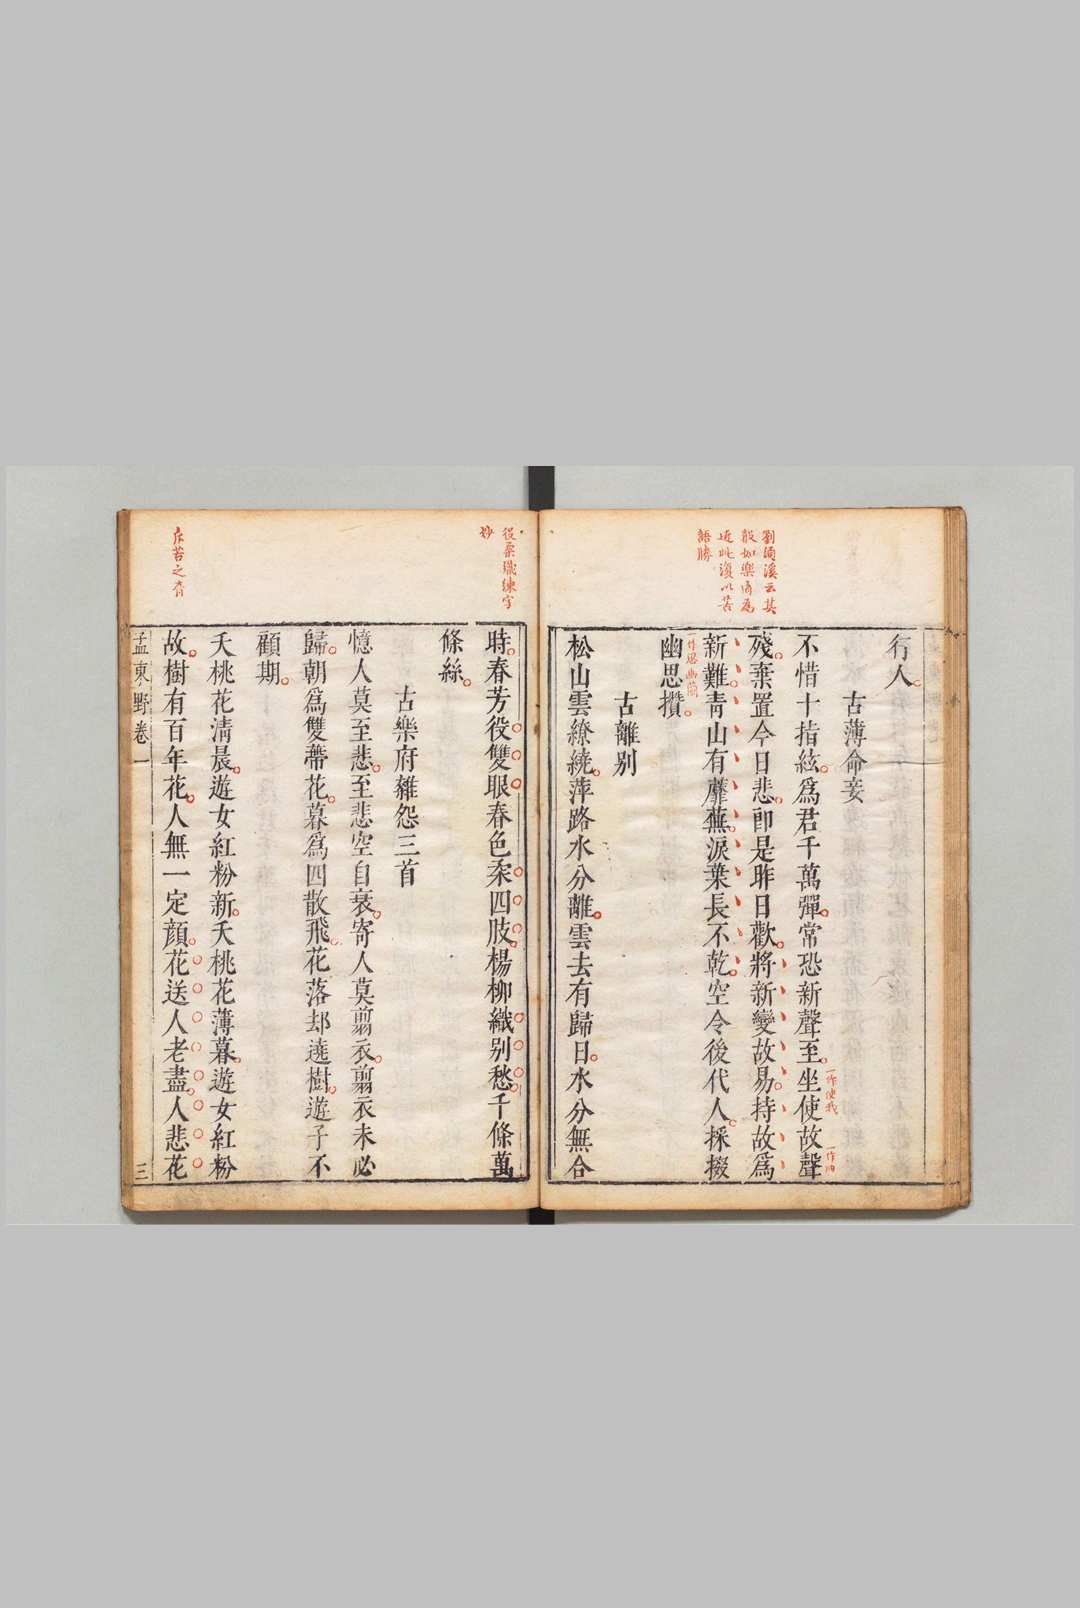 劉須溪云其
般如樂府為
近此復以苦
語勝
行人
古薄命妾
不惜十指絃為君千萬彈常恐新聲至坐使故聲
一作使我
一作兩
殘棄置今日悲卽是昨日歡將新變故易持故為
新難靑山有蘼蕪淚葉長不乾空令後代人採掇
一作思幽蘭
幽思攢
古離別
松山雲繚繞萍路水分離雲去有歸日水分無合
役桼織練字
妙
時春芳役雙眼春色桼四肢楊柳織別愁千條萬
條絲
古樂府雜怨三首
憶人莫至悲至悲空自衰寄人莫翦衣翦衣未必
歸朝為雙蔕花暮為四散飛花落却遶樹遊子不
顧期
夭桃花淸晨遊女紅粉新夭桃花薄暮遊女紅粉
故樹有百年花人無一定顔花送人老盡人悲花
孟東野卷一
三